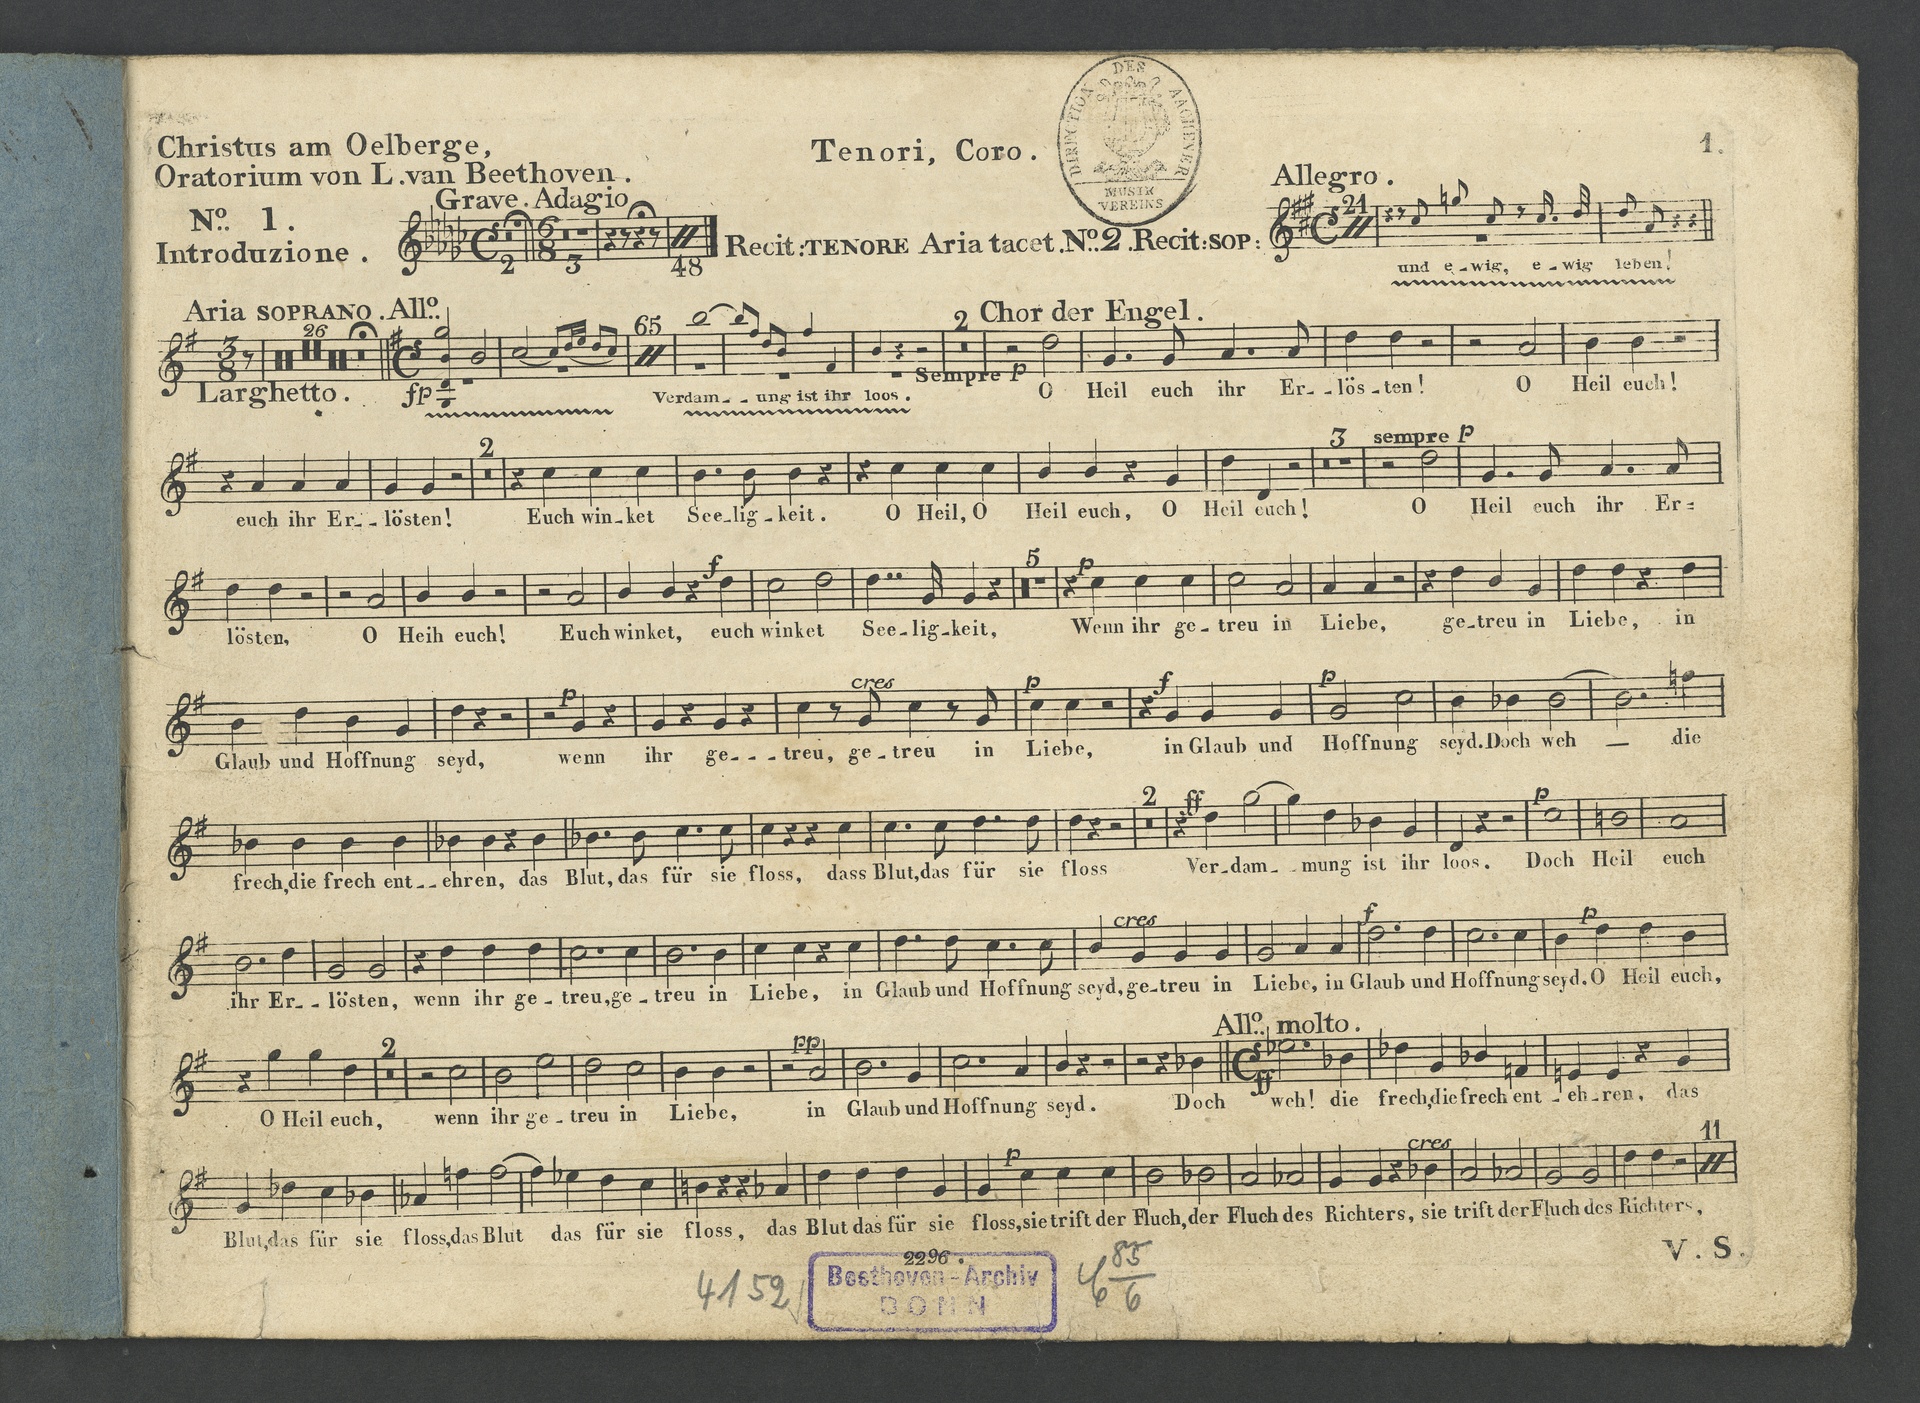 DIRECTION DES AACHENER
MUSIK
VEREINS
1.
Christus am Oelberge,
Oratorium von L. van Beethoven.
Tenori, Coro.
Grave. Adagio
Allegro.
No. 1.
Introduzione.
6 8 2 3 48
Recit: TENORE Aria tacet. No. 2. Recit: SOP:
21
und e-wig, e-wig leben!
Aria SOPRANO. Allo.
Chor der Engel.
3 8 26 65 2
Larghetto.
fp
Sempre p
Verdam--ung ist ihr loos.
O Heil euch ihr Er--lös-ten! O Heil euch!
2 3 sempre p
euch ihr Er--lösten! Euch win-ket See-lig-keit. O Heil, O Heil euch, O Heil euch! O Heil euch ihr Er=
f 5 p
lösten, O Heih euch! Euch winket, euch winket See-lig-keit, Wenn ihr ge-treu in Liebe, ge-treu in Liebe, in
p cres p f p
Glaub und Hoffnung seyd, wenn ihr ge---treu, ge-treu in Liebe, in Glaub und Hoffnung seyd. Doch weh — die
2 ff p
frech, die frech ent--ehren, das Blut, das für sie floss, dass Blut, das für sie floss Ver-dam--mung ist ihr loos. Doch Heil euch
cres f p
ihr Er--lösten, wenn ihr ge-treu, ge-treu in Liebe, in Glaub und Hoffnung seyd, ge-treu in Liebe, in Glaub und Hoffnung seyd. O Heil euch,
Allo. molto.
2 pp ff
O Heil euch, wenn ihr ge-treu in Liebe, in Glaub und Hoffnung seyd. Doch weh! die frech, die frech ent-eh-ren, das
p cres 11
Blut, das für sie floss, das Blut das für sie floss, das Blut das für sie floss, sie trift der Fluch, der Fluch des Richters, sie trift der Fluch des Richters,
V. S.
2296.
4152
Beethoven-Archiv
BONN
85
6